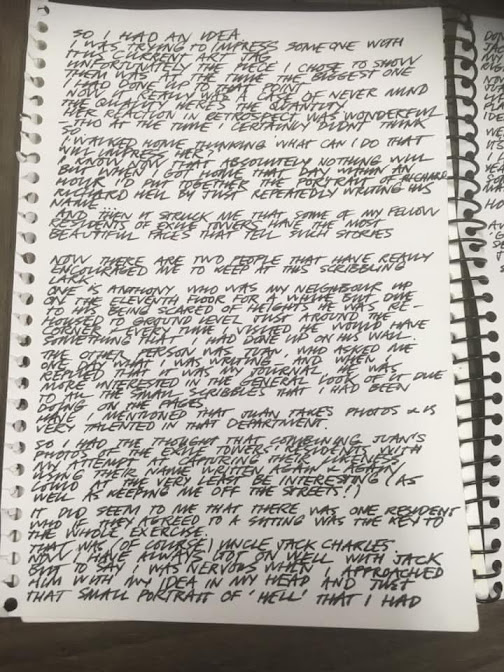 SO I HAD AN IDEA.
I WAS TRYING TO IMPRESS SOMEONE WITH
THIS CURRENT ART
UNFORTUNATELY THE PIECE I CHOSE TO SHOW
THEM WAS AT THE TIME THE BIGGEST ONE
I HAD DONE UP TO THAT POINT
NOW IT REALLY WAS A CASE OF NEVER MIND
THE QUALITY HERE'S THE QUANTITY
HER REACTION IN RETROSPECT WAS WONDERFUL
- THO AT THE TIME I CERTAINLY DIDNT THINK
SO
I WALKED HOME THINKING 'WHAT CAN I DO THAT
WILL IMPRESS HER'
I KNOW NOW THAT ABSOLUTELY NOTHING WILL
BUT WHEN I GOT HOME THAT DAY WITHIN AN
HOUR I'D PUT TOGETHER THE PORTRAIT OF RICHARD
RICHARD HELL BY JUST REPEATEDLY WRITING HIS
NAME
AND THEN IT STRUCK ME THAT SOME OF MY FELLOW
RESIDENTS OF EXILE TOWERS HAVE THE MOST
BEAUTIFUL FACES THAT TELL SUCH STORIES
NOW THERE ARE TWO PEOPLE THAT HAVE REALLY
ENCOURAGED ME TO KEEP AT THIS SCRIBBLING
LARK
ONE IS ANTHONY WHO WAS MY NEIGHBOUR UP
ON THE ELEVENTH FLOOR FOR A WHILE BUT DUE
TO HIS BEING SCARED OF HEIGHTS HE WAS RE-
HOUSED TO GROUND LEVEL JUST AROUND THE
CORNER - EVERY TIME I VISITED HE WOULD HAVE
SOMETHING THAT I HAD DONE UP ON HIS WALL.
THE OTHER PERSON WAS JUAN, WHO ASKED ME
ONE DAY WHAT I WAS WRITING - AND WHEN I
REPLIED THAT IT WAS MY JOURNAL HE WAS
MORE INTERESTED IN THE GENERAL LOOK OF IT DUE
TO ALL THE SMALL SCRIBBLES THAT I HAD BEEN
DOING ON THE PAGES
HAVE I MENTIONED THAT JUAN TAKES PHOTOS & IS
VERY TALENTED IN THAT DEPARTMENT.
SO I HAD THE THOUGHT THAT COMBINING JUAN'S
PHOTOS OF THE EXILE TOWERS' RESIDENTS WITH
MY ATTEMPT AT CAPTURING THEIR LIKENESS
USING THEIR NAME WRITTEN AGAIN & AGAIN
WOULD AT THE VERY LEAST BE INTERESTING (AS
WELL AS KEEPING ME OFF THE STREETS!)
IT DID SEEM TO ME THAT THERE WAS ONE RESIDENT
WHO IF THEY AGREED TO A SITTING WAS THE KEY TO
THE WHOLE EXERCISE.
THAT WAS (OF COURSE) UNCLE JACK CHARLES
NOW I HAVE ALWAYS GOT ON WELL WITH JACK
BUT TO SAY I WAS NERVOUS WHEN I APPROACHED
HIM WITH MY IDEA IN MY HEAD AND JUST
THAT SMALL PORTRAIT OF 'HELL' THAT I HAD